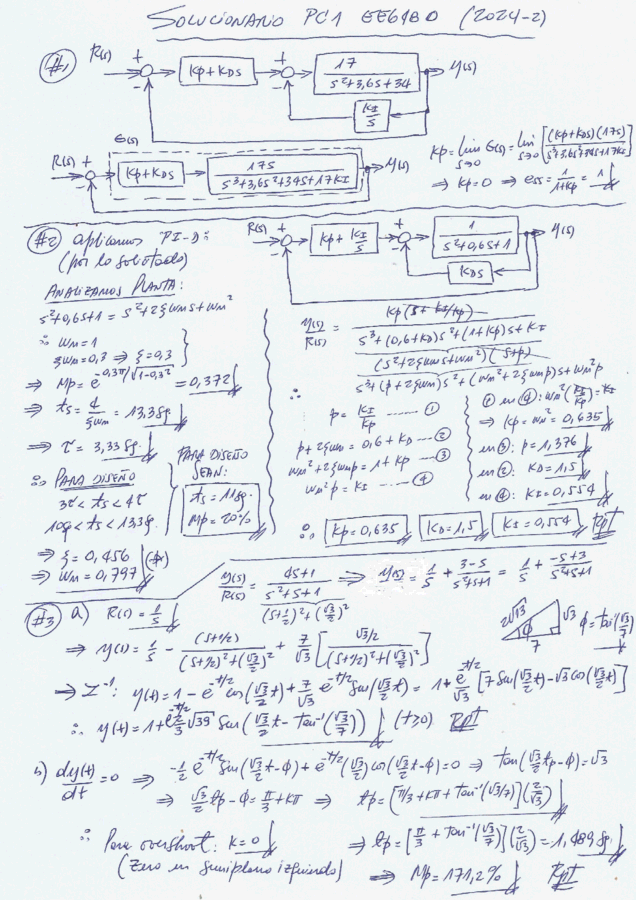 SOLUCIONARIO PC1 EE618D (2024-2)
#1
R(s) + - Kp+KDS + - 17/(s²+3,6s+34) y(s)
KI/s
G(s)
R(s) + - Kp+KDS 17s/(s³+3,6s²+34s+17KI) y(s)
Kp = lim s→0 G(s) = lim s→0 [(Kp+KDS)(17s)/(s³+3,6s²+34s+17KI)]
⇒ Kp=0 ⇒ ess = 1/(1+Kp) = 1
#2 aplicamos PI-D:
(por lo solicitado)
R(s) + - Kp + KI/s + - 1/(s²+0,6s+1) y(s)
KDS
ANALIZAMOS PLANTA:
s²+0,6s+1 = s²+2ξωns+ωn²
∴ ωn=1
ξωn=0,3 ⇒ ξ=0,3
⇒ Mp = e^(-0,3π/√(1-0,3²)) = 0,372
⇒ ts = 4/(ξωn) = 13,3 sg.
⇒ τ = 3,33 sg.
∴ PARA DISEÑO
3τ < ts < 4τ
10sg < ts < 13,3sg.
PARA DISEÑO
SEAN:
ts = 11sg.
Mp = 20%
⇒ ξ = 0,456 (*)
⇒ ωn = 0,797
y(s)/R(s) = Kp(s + KI/Kp)/(s³+(0,6+KD)s²+(1+Kp)s+KI)
(s²+2ξωns+ωn²)(s+p)
s³+(p+2ξωn)s²+(ωn²+2ξωnp)s+ωn²p
∴ p = KI/Kp ------ ①
p+2ξωn = 0,6+KD --- ②
ωn²+2ξωnp = 1+Kp --- ③
ωn²p = KI ------ ④
① en ④: ωn²(KI/Kp) = KI
⇒ Kp = ωn² = 0,635
en ③: p = 1,376
en ②: KD = 1,5
en ④: KI = 0,554
∴ Kp=0,635 KD=1,5 KI=0,554 Rpt
#3 a) R(s) = 1/s
y(s)/R(s) = (4s+1)/(s²+s+1) ⇒ y(s) = 1/s + (3-s)/(s²+s+1) = 1/s + (-s+3)/(s²+s+1)
(s+1/2)²+(√3/2)²
⇒ y(s) = 1/s - (s+1/2)/((s+1/2)²+(√3/2)²) + 7/√3 [(√3/2)/((s+1/2)²+(√3/2)²)]
2√13 √3 φ 7 φ = tan⁻¹(√3/7)
⇒ Z⁻¹: y(t) = 1 - e^(-t/2) cos(√3/2 t) + 7/√3 e^(-t/2) Sen(√3/2 t) = 1 + e^(-t/2)/√3 [7 Sen(√3/2 t) - √3 cos(√3/2 t)]
∴ y(t) = 1 + e^(-t/2) 2/3 √39 Sen(√3/2 t - tan⁻¹(√3/7)) (t≥0) Rpt
b) dy(t)/dt = 0 ⇒ -1/2 e^(-t/2) Sen(√3/2 t - φ) + e^(-t/2)(√3/2) cos(√3/2 t - φ) = 0 ⇒ tan(√3/2 tp - φ) = √3
⇒ √3/2 tp - φ = π/3 + kπ ⇒ tp = [π/3 + kπ + tan⁻¹(√3/7)](2/√3)
∴ Para overshoot: k=0 ⇒ tp = [π/3 + tan⁻¹(√3/7)](2/√3) = 1,489 sg
(Zero en semiplano izquierdo) ⇒ Mp = 171,2% Rpt